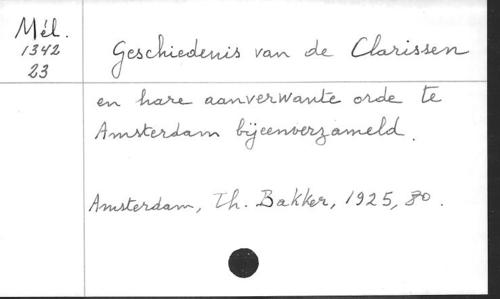 Mél.
1342
23
Geschiedenis van de Clarissen
en hare aanverwante orde te
Amsterdam bijeenverzameld.
Amsterdam, Th. Bakker, 1925, 8o.